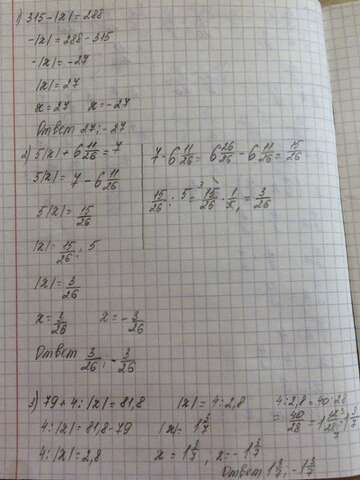 1) 315-|x|=288
-|x|=288-315
-|x|=-27
|x|=27
x=27 x=-27
Ответ 27; -27
2) 5|x|+6 11/26=7
5|x|=7-6 11/26
5|x|=15/26
|x|=15/26 : 5
|x|=3/26
x=3/26 x=-3/26
Ответ 3/26; -3/26
7-6 11/26=6 26/26-6 11/26=15/26
15/26 : 5=15/26 · 1/5=3/26
3) 79+4:|x|=81,8
4:|x|=81,8-79
4:|x|=2,8
|x|=4:2,8
|x|=1 3/7
x=1 3/7, x=-1 3/7
4:2,8=40:28
=40/28=1 12/28=1 3/7
Ответ 1 3/7; -1 3/7